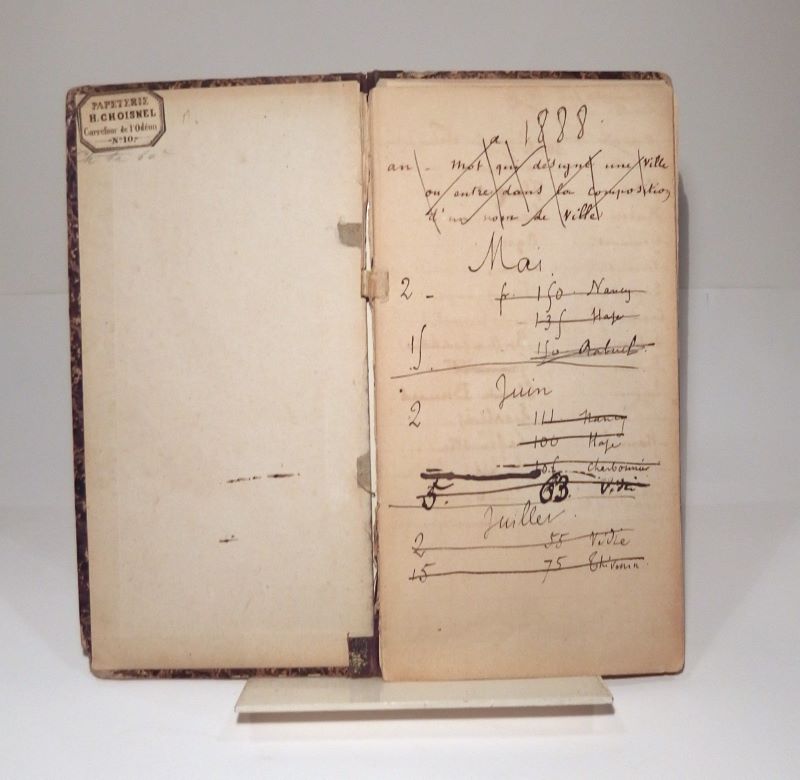 PAPETERIE
H. CHOISNEL
Carrefour de l'Odéon
N° 10
1888.
an - mot qui désigne une Ville
ou entre dans la composition
d'un nom de Ville
Mai
2 - fr. 150 Nancy
135
15 150
Juin
2 111 Nancy
100
Charbonnier
5. 63
Juillet.
2 55 Vidie
15 75